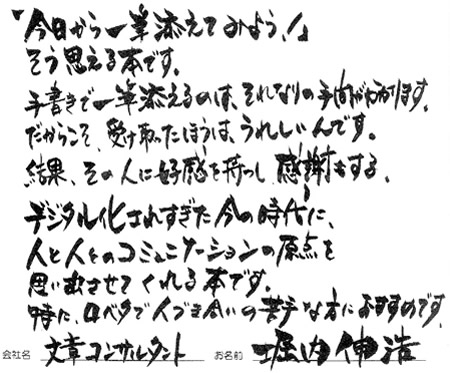 「今日から一筆添えてみよう！」
そう思える本です。
手書きで一筆添えるのは、それなりの手間がかかります。
だからこそ、受け取ったほうは、うれしいんです。
結果、その人に好感を持つし、感謝もする。
デジタル化されすぎた今の時代に、
人と人とのコミュニケーションの原点を
思い出させてくれる本です。
特に、口ベタで人づき合いの苦手な方におすすめです。
会社名 文章コンサルタント お名前 堀内伸浩